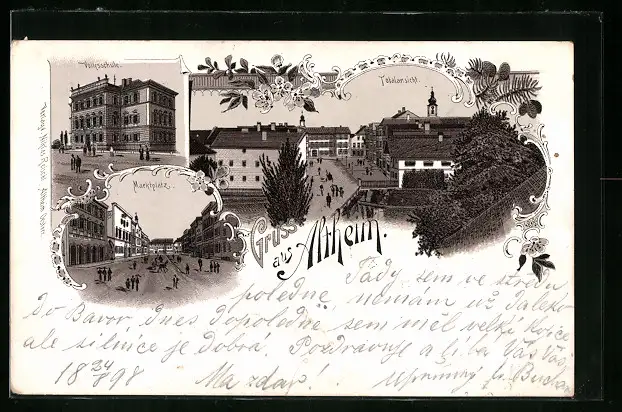 Volksschule.
Totalansicht.
Marktplatz.
Gruss
aus Altheim.
Tady sem ve středu
poledne, nemám už daleko
do Bavor, dnes dopoledne sem měl velké
ale silnice je dobrá. Pozdravuje a líbá Vás Váš
18 24/8 98 Na zdar!